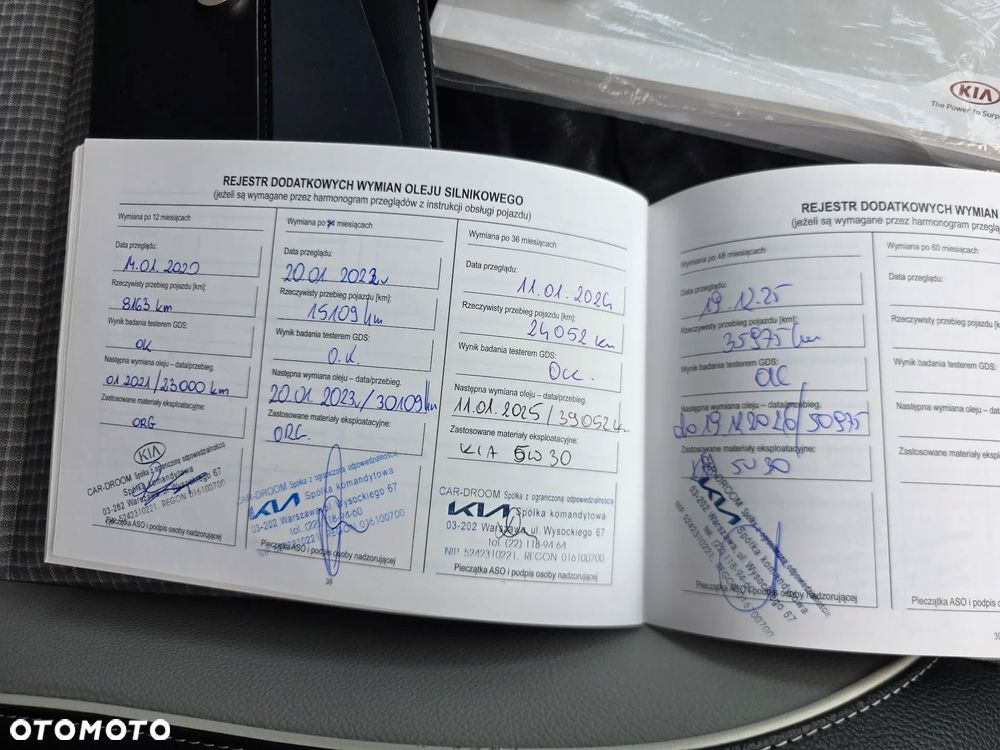 KIA
The Power to Surp
REJESTR DODATKOWYCH WYMIAN OLEJU SILNIKOWEGO
(jeżeli są wymagane przez harmonogram przeglądów z instrukcji obsługi pojazdu)
Wymiana po 12 miesiącach
Data przeglądu:
01.2020
Rzeczywisty przebieg pojazdu [km]:
8163 km
Wynik badania testerem GDS:
OK
Następna wymiana oleju – data/przebieg.
01.2021/23000 km
Zastosowane materiały eksploatacyjne:
ORG
KIA
CAR-DROOM Spółka z ograniczoną odpowiedzialnością
Spółka komandytowa
03-202 Warszawa, ul. Wysockiego 67
NIP 5242310221, REGON 016100700
Pieczątka ASO i podpis osoby nadzorującej
Wymiana po miesiącach
Data przeglądu:
20.01.
Rzeczywisty przebieg pojazdu [km]:
15109 km
Wynik badania testerem GDS:
O.K.
Następna wymiana oleju – data/przebieg.
20.01 2023r/30109 km
Zastosowane materiały eksploatacyjne:
ORG.
CAR-DROOM Spółka z ograniczoną odpowiedzialnością
KIA Spółka komandytowa
03-202 Warszawa, ul. Wysockiego 67
tel. (22) 118-94-60
REGON 016100700
Pieczątka ASO i podpis osoby nadzorującej
36
Wymiana po 36 miesiącach
Data przeglądu:
11.01.2024
Rzeczywisty przebieg pojazdu [km]:
24052 km
Wynik badania testerem GDS:
Ok.
Następna wymiana oleju – data/przebieg.
11.01.2025/39052 km
Zastosowane materiały eksploatacyjne:
KIA 5W30
CAR-DROOM Spółka z ograniczoną odpowiedzialnością
KIA Spółka komandytowa
03-202 Warszawa, ul. Wysockiego 67
tel. (22) 118-94 64
NIP 5242310221, REGON 016100700
Pieczątka ASO i podpis osoby nadzorującej
REJESTR DODATKOWYCH WYMIAN
(jeżeli są wymagane przez harmonogram przeglą
Wymiana po 48 miesiącach
Data przeglądu:
19.12.25
Rzeczywisty przebieg pojazdu [km]:
35975 km
Wynik badania testerem GDS:
OK
Następna wymiana oleju – data/przebieg.
do 19.12.2026/50975
Zastosowane materiały eksploatacyjne:
5W30
CAR-DROOM Spółka z ograniczoną odpowiedzialnością
KIA Spółka komandytowa
03-202 Warszawa, ul. Wysockiego 67
NIP 5242310221, REGON 016100700
Pieczątka ASO i podpis osoby nadzorującej
Wymiana po 60 miesiącach
Data przeglądu:
Rzeczywisty przebieg poj
Wynik badania testerem
Następna wymiana oleju
Zastosowane materiały eksp
Pieczątka ASO i podpis o
39
OTOMOTO